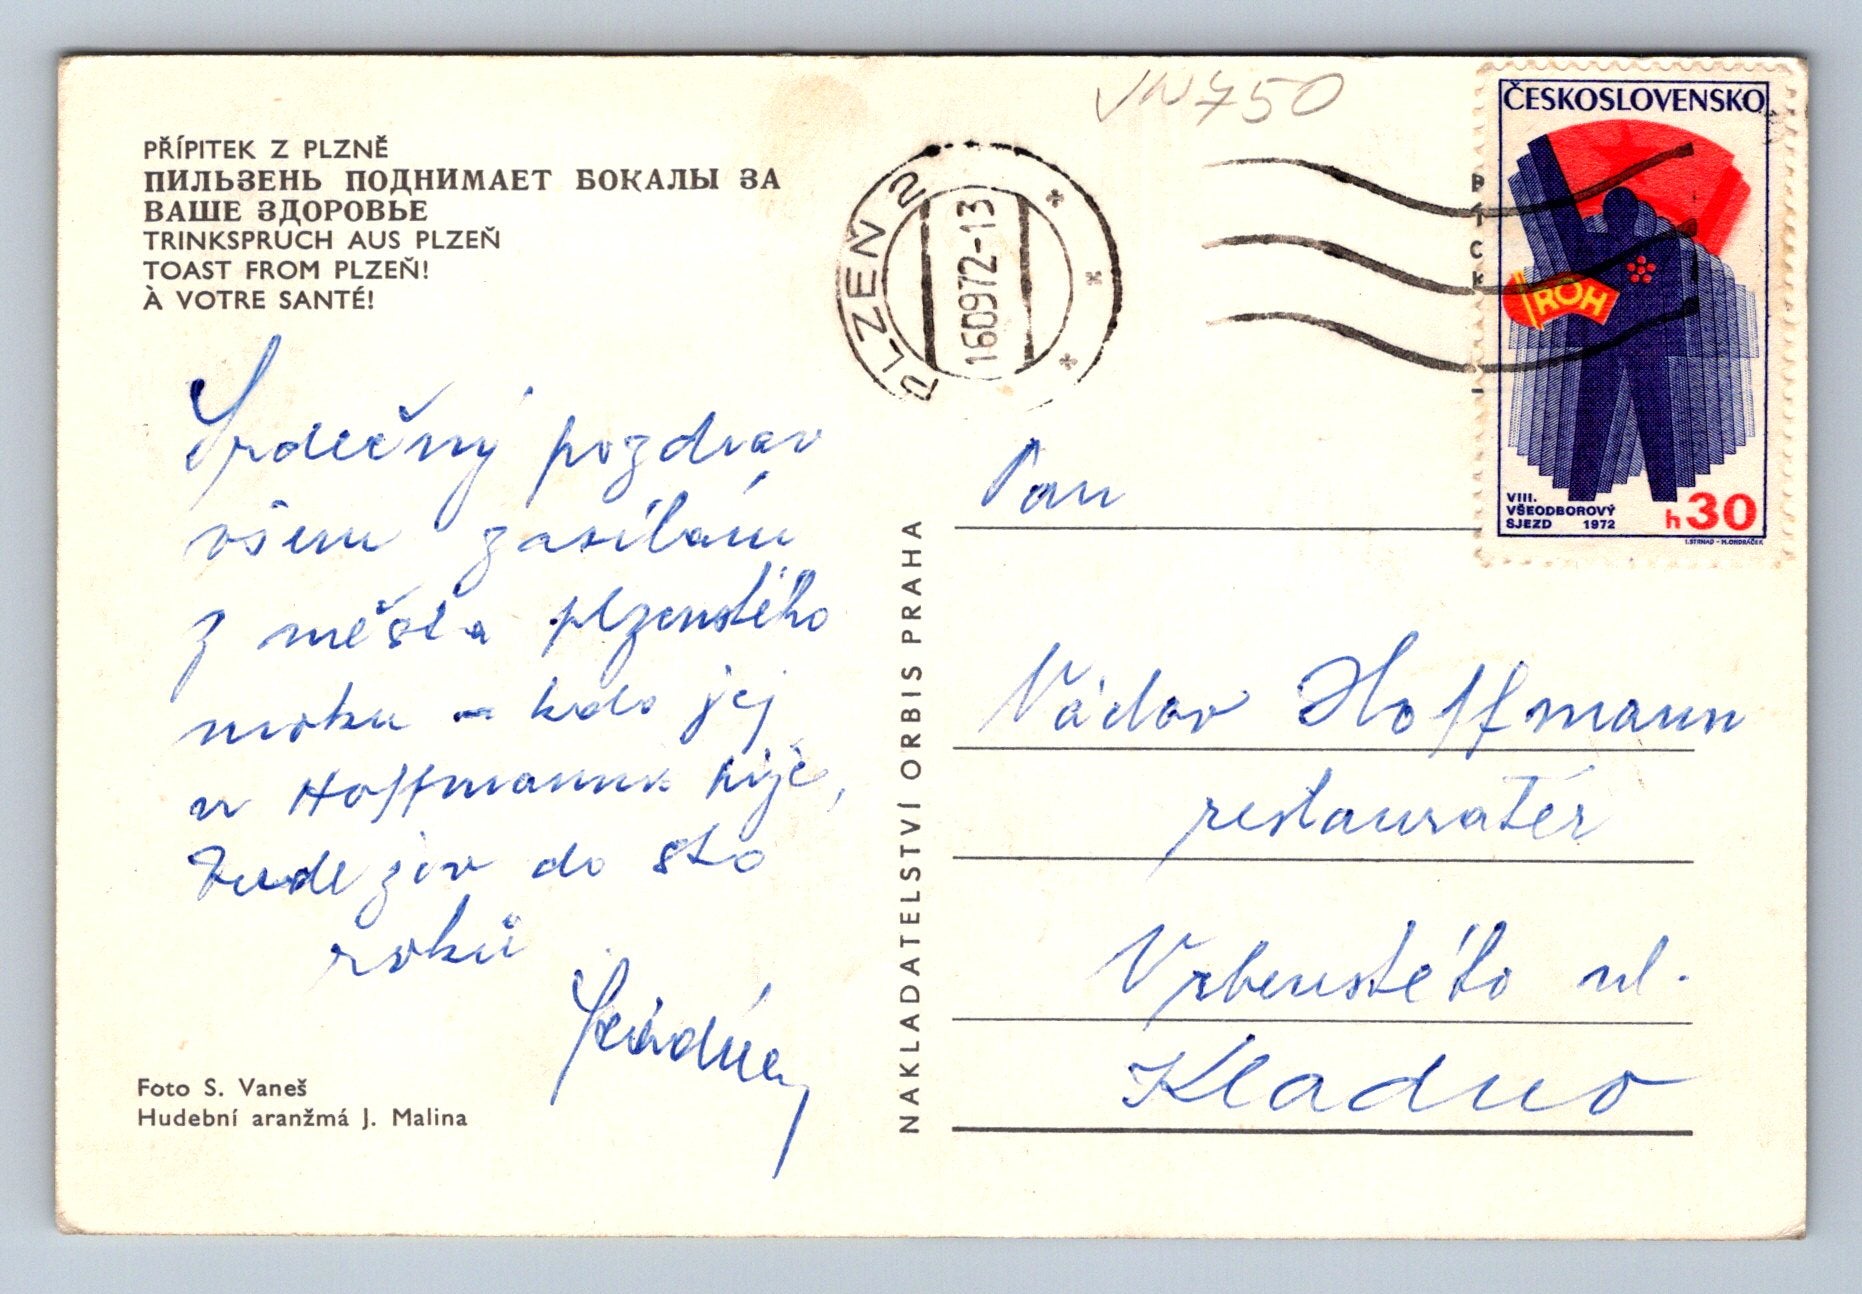 PŘÍPITEK Z PLZNĚ
ПИЛЬЗЕНЬ ПОДНИМАЕТ БОКАЛЫ ЗА
ВАШЕ ЗДОРОВЬЕ
TRINKSPRUCH AUS PLZEŇ
TOAST FROM PLZEŇ!
À VOTRE SANTÉ!
Srdečný pozdrav
všem zasílám
z města plzenského
moku - kdo jej
u Hoffmanna pije,
bude živ do sto
roků
Foto S. Vaneš
Hudební aranžmá J. Malina
NAKLADATELSTVÍ ORBIS PRAHA
750
PLZEŇ 2
160972-13
ČESKOSLOVENSKO
ROH
VIII.
VŠEODBOROVÝ
SJEZD 1972
h30
I. STRNAD - M. ONDRÁČEK
Pan
Václav Hoffmann
restauratér
Vrbenského ul.
Kladno